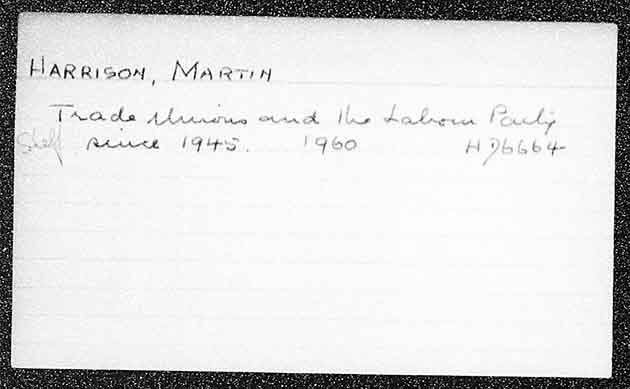 HARRISON, MARTIN
Trade Unions and the Labour Party
Shelf since 1945. 1960 HD6664